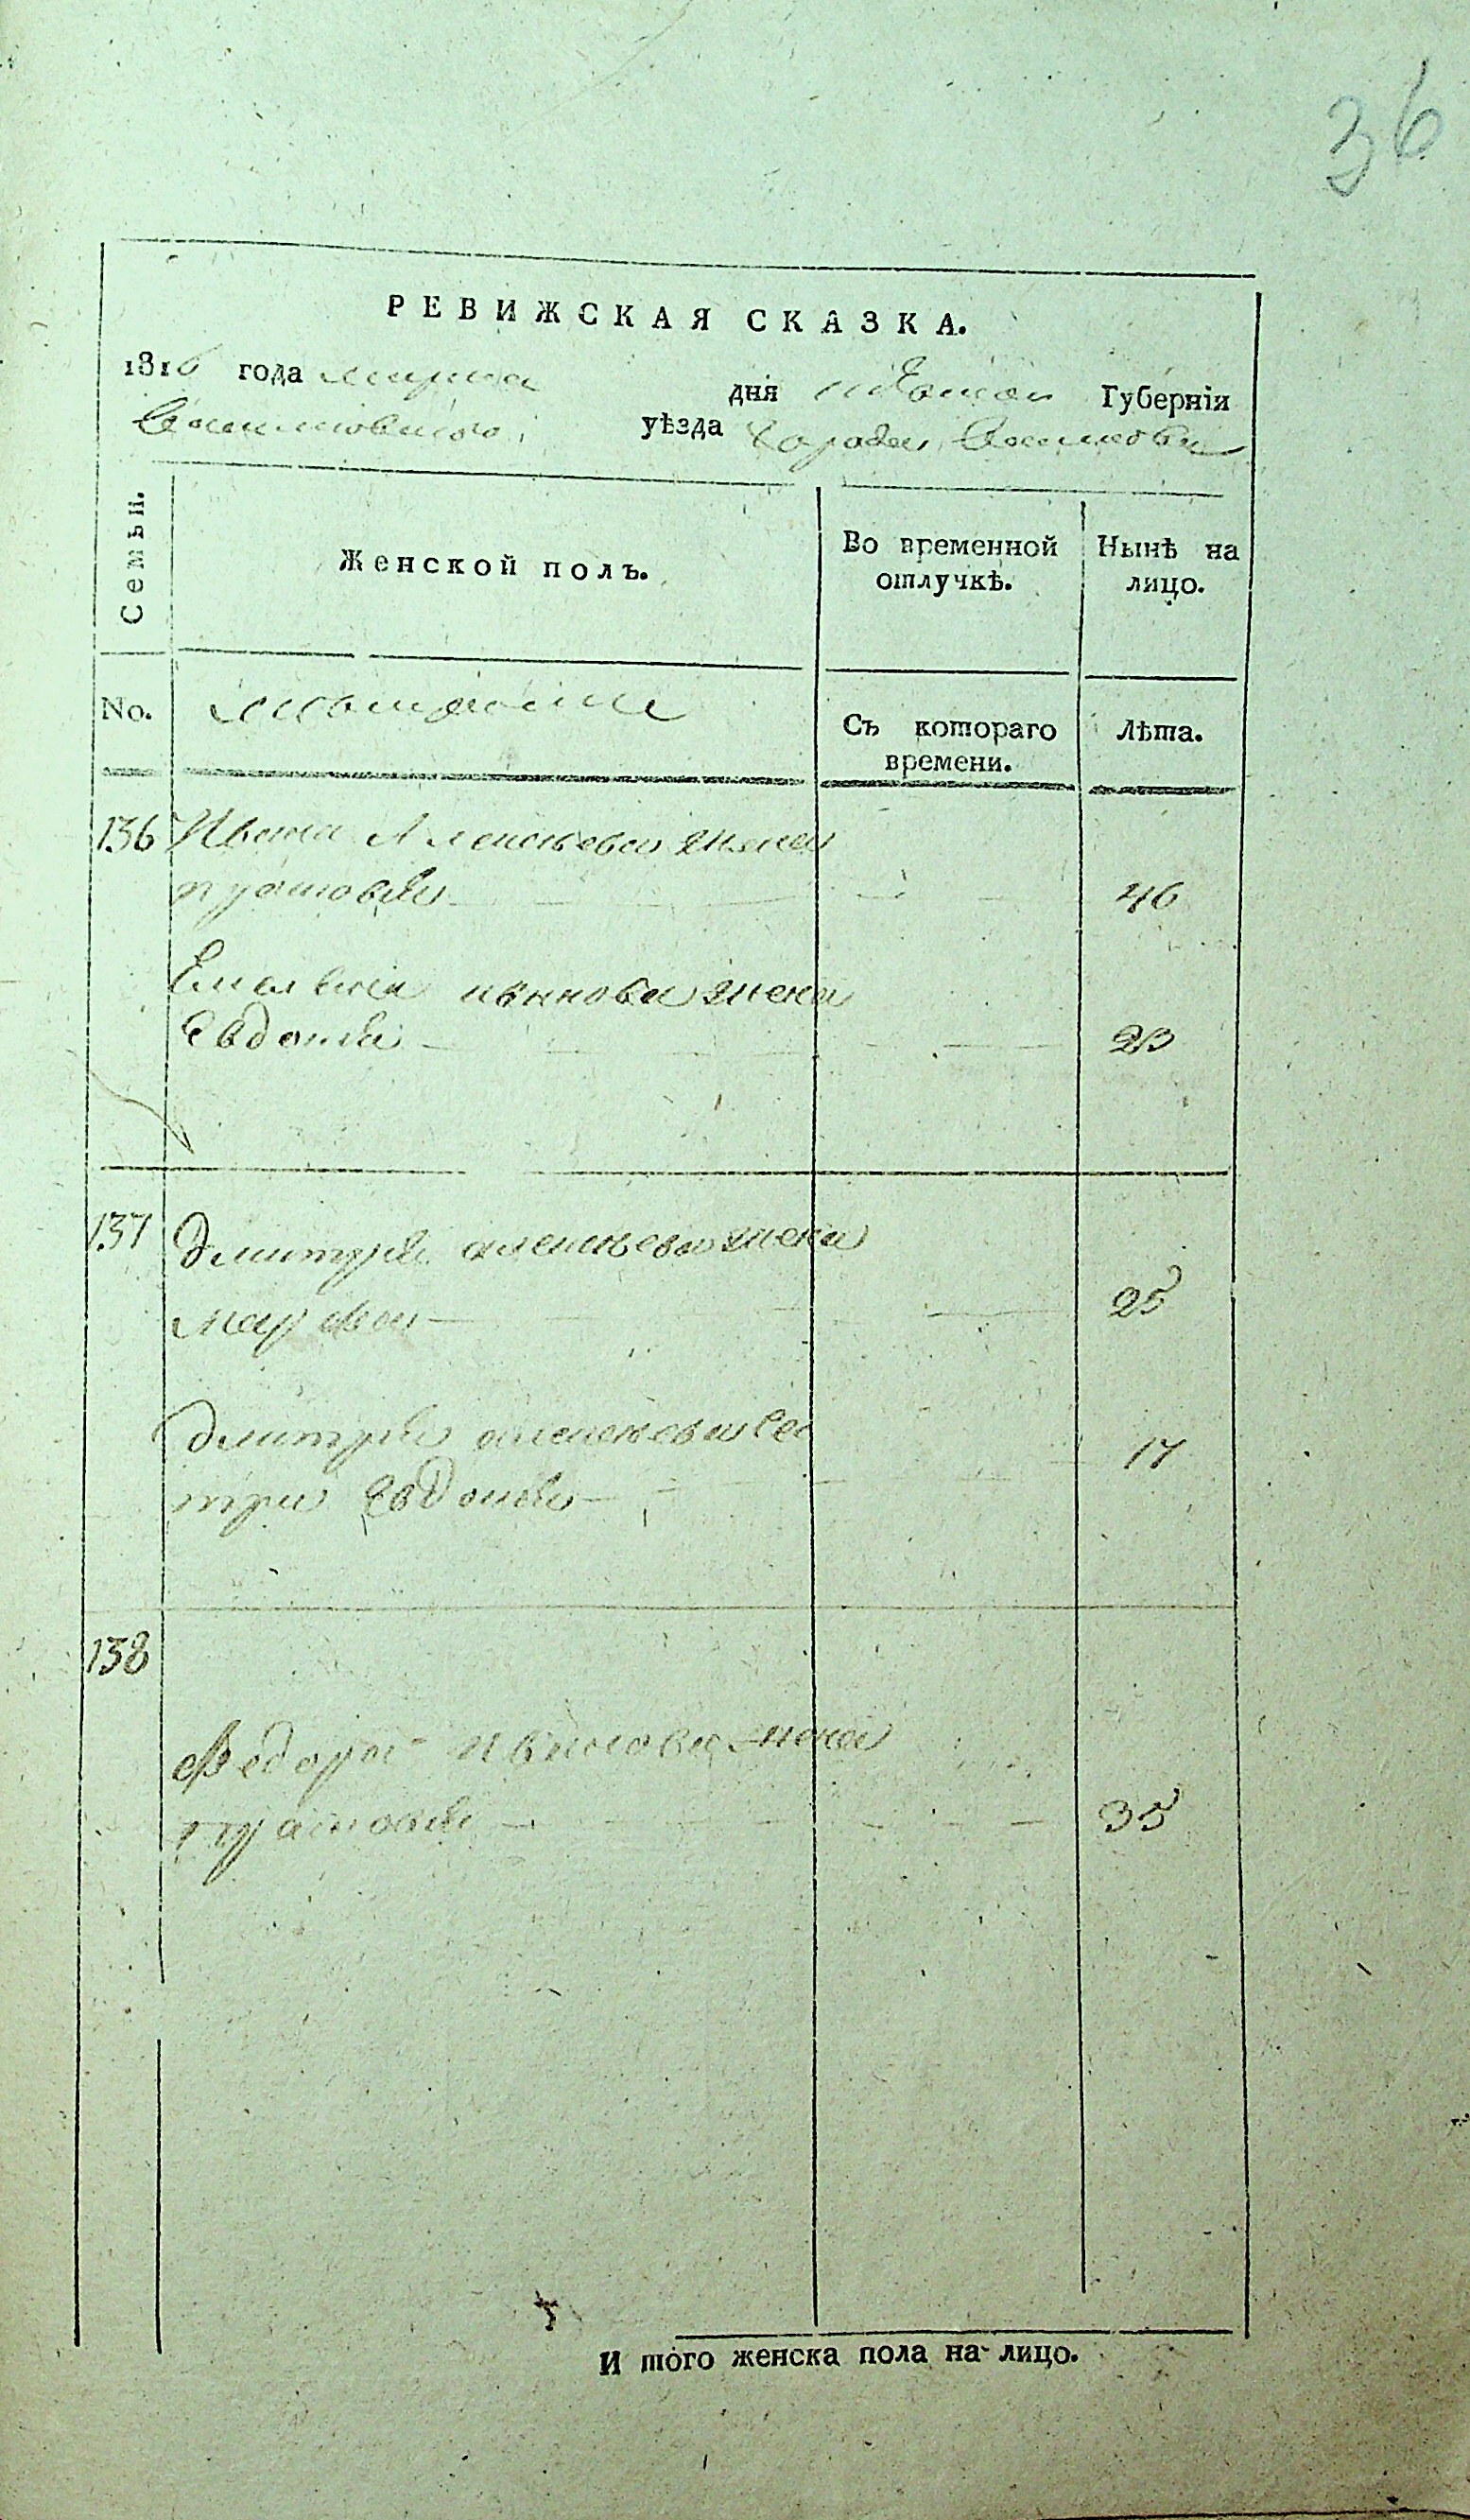 36
РЕВИЖСКАЯ СКАЗКА.
1816 года марта дня Губернїи
уѣзда города
Семьи. Женской полъ. Во временной отлучкѣ. Нынѣ на лицо.
No. мѣщане Съ котораго времени. Лѣта.
136 Ивана Алексѣева жена
46
Емельяна иванова жена
Евдокия 23
137 Дмитрия алексѣева жена
марфа 25
дмитрия алексѣева сес
тра Евдокия 17
138
Федора иванова жена
35
И того женска пола на лицо.